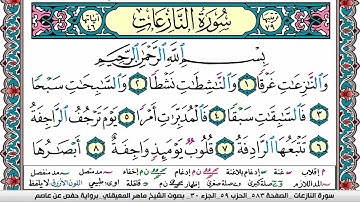 سُورَةُ النَّازِعَاتِ
بِسْمِ ٱللَّهِ ٱلرَّحْمَٰنِ ٱلرَّحِيمِ
وَٱلنَّٰزِعَٰتِ غَرْقًا ١ وَٱلنَّٰشِطَٰتِ نَشْطًا ٢ وَٱلسَّٰبِحَٰتِ سَبْحًا
٣ فَٱلسَّٰبِقَٰتِ سَبْقًا ٤ فَٱلْمُدَبِّرَٰتِ أَمْرًا ٥ يَوْمَ تَرْجُفُ ٱلرَّاجِفَةُ
٦ تَتْبَعُهَا ٱلرَّادِفَةُ ٧ قُلُوبٌ يَوْمَئِذٍ وَاجِفَةٌ ٨ أَبْصَٰرُهَا
سورة النازعات - الصفحة ٥٨٣ - الحزب ٥٩ - الجزء ٣٠ - بصوت الشيخ ماهر المعيقلي - برواية حفص عن عاصم